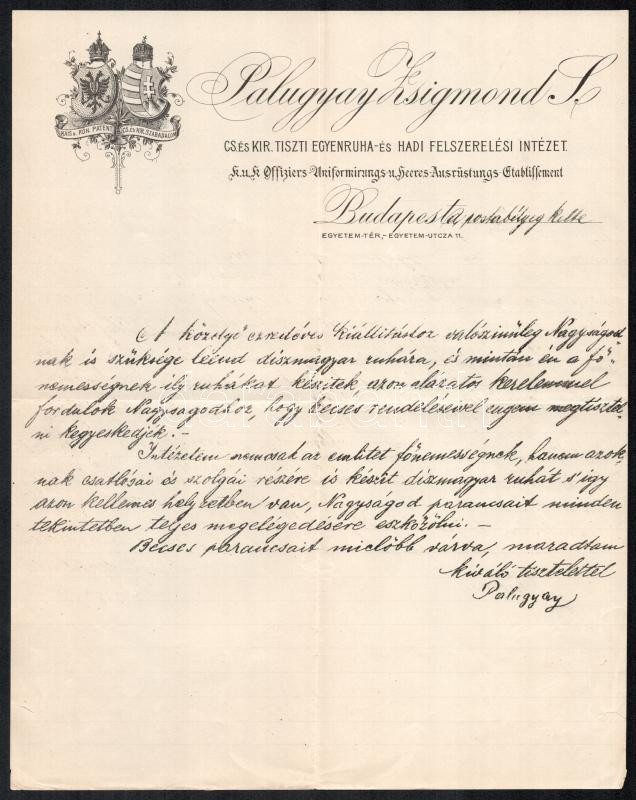 Palugyay Zsigmond S.
KAIS. u. KÖN. PATENT CS. és KIR. SZABADALOM
CS. és KIR. TISZTI EGYENRUHA- és HADI FELSZERELÉSI INTÉZET.
K. u. K Offiziers-Uniformirungs-u. Heeres-Ausrüstungs-Etablissement
Budapest, a postabélyeg kelte
EGYETEM-TÉR,-EGYETEM-UTCZA 11.
A közelgő ezredéves kiállitáshoz valószinűleg Nagyságod-
nak is szüksége léend diszmagyar ruhára, és mintán én a fő-
nemességnek ily ruhákat készitek, azon alázatos kérelemmel
fordulok Nagyságodhoz, hogy becses rendelésével engem megtisztel-
ni kegyeskedjék. -
Intézetem nemcsak az emlitet főnemességnek, hanem azok-
nak csatlósai és szolgái részére is készit diszmagyar ruhát s' igy
azon kellemes helyzetben van, Nagyságod parancsait minden
tekintetben teljes megelégedésére eszközölni. -
Becses parancsait mielőbb várva, maradtam
kiváló tisztelettel
Palugyay